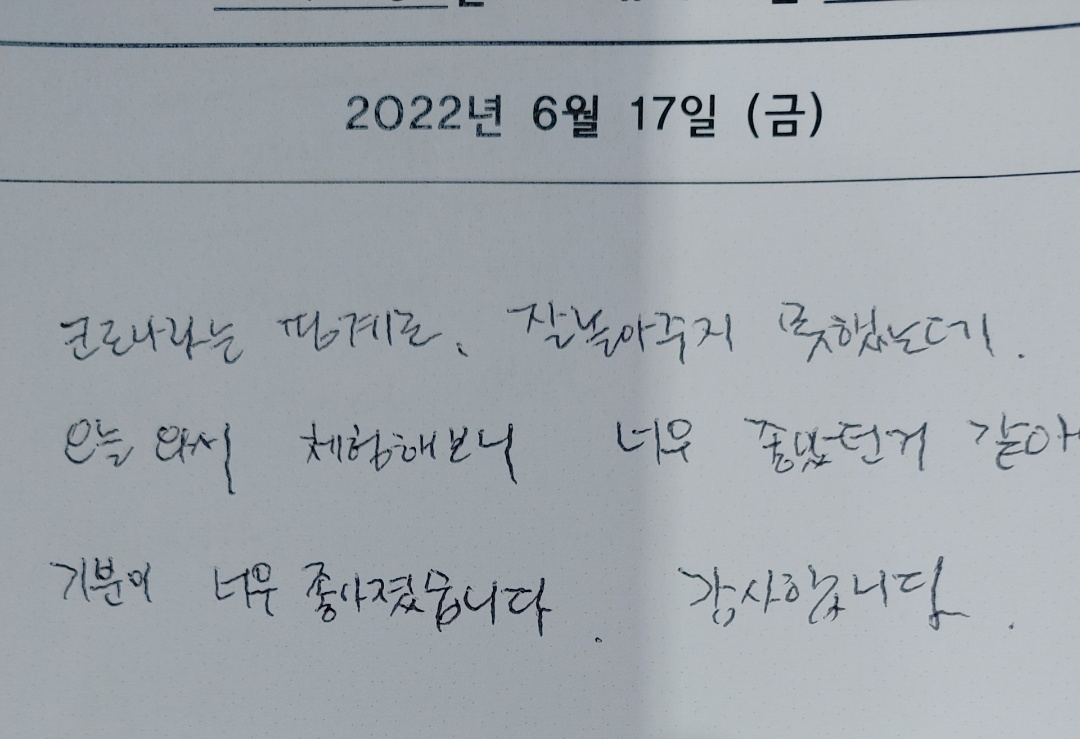 2022년 6월 17일 (금)
코로나라는 핑계로. 잘놀아주지 못했는데.
오늘 와서 체험해보니 너무 좋았던거 같아
기분이 너무 좋아졌습니다. 감사합니다.